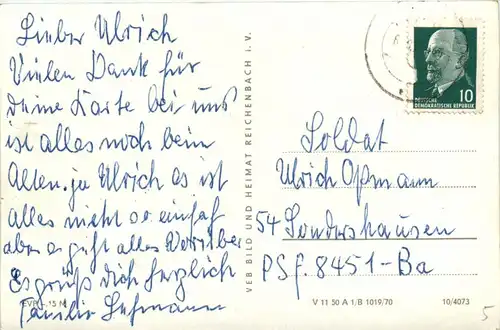 Lieber Ulrich
Vielen Dank für
deine Karte bei uns
ist alles noch beim
Alten. ja Ulrich es ist
alles nicht so einfach
aber es geht alles Vorrüber
Es grüßt dich herzlich
Familie
EVP –.15 M
VEB BILD UND HEIMAT REICHENBACH I. V.
10
DEUTSCHE
DEMOKRATISCHE REPUBLIK
Soldat
Ulrich
54 Sondershausen
PSF. 8451-Ba
V 11 50 A 1/B 1019/70
10/4073
5